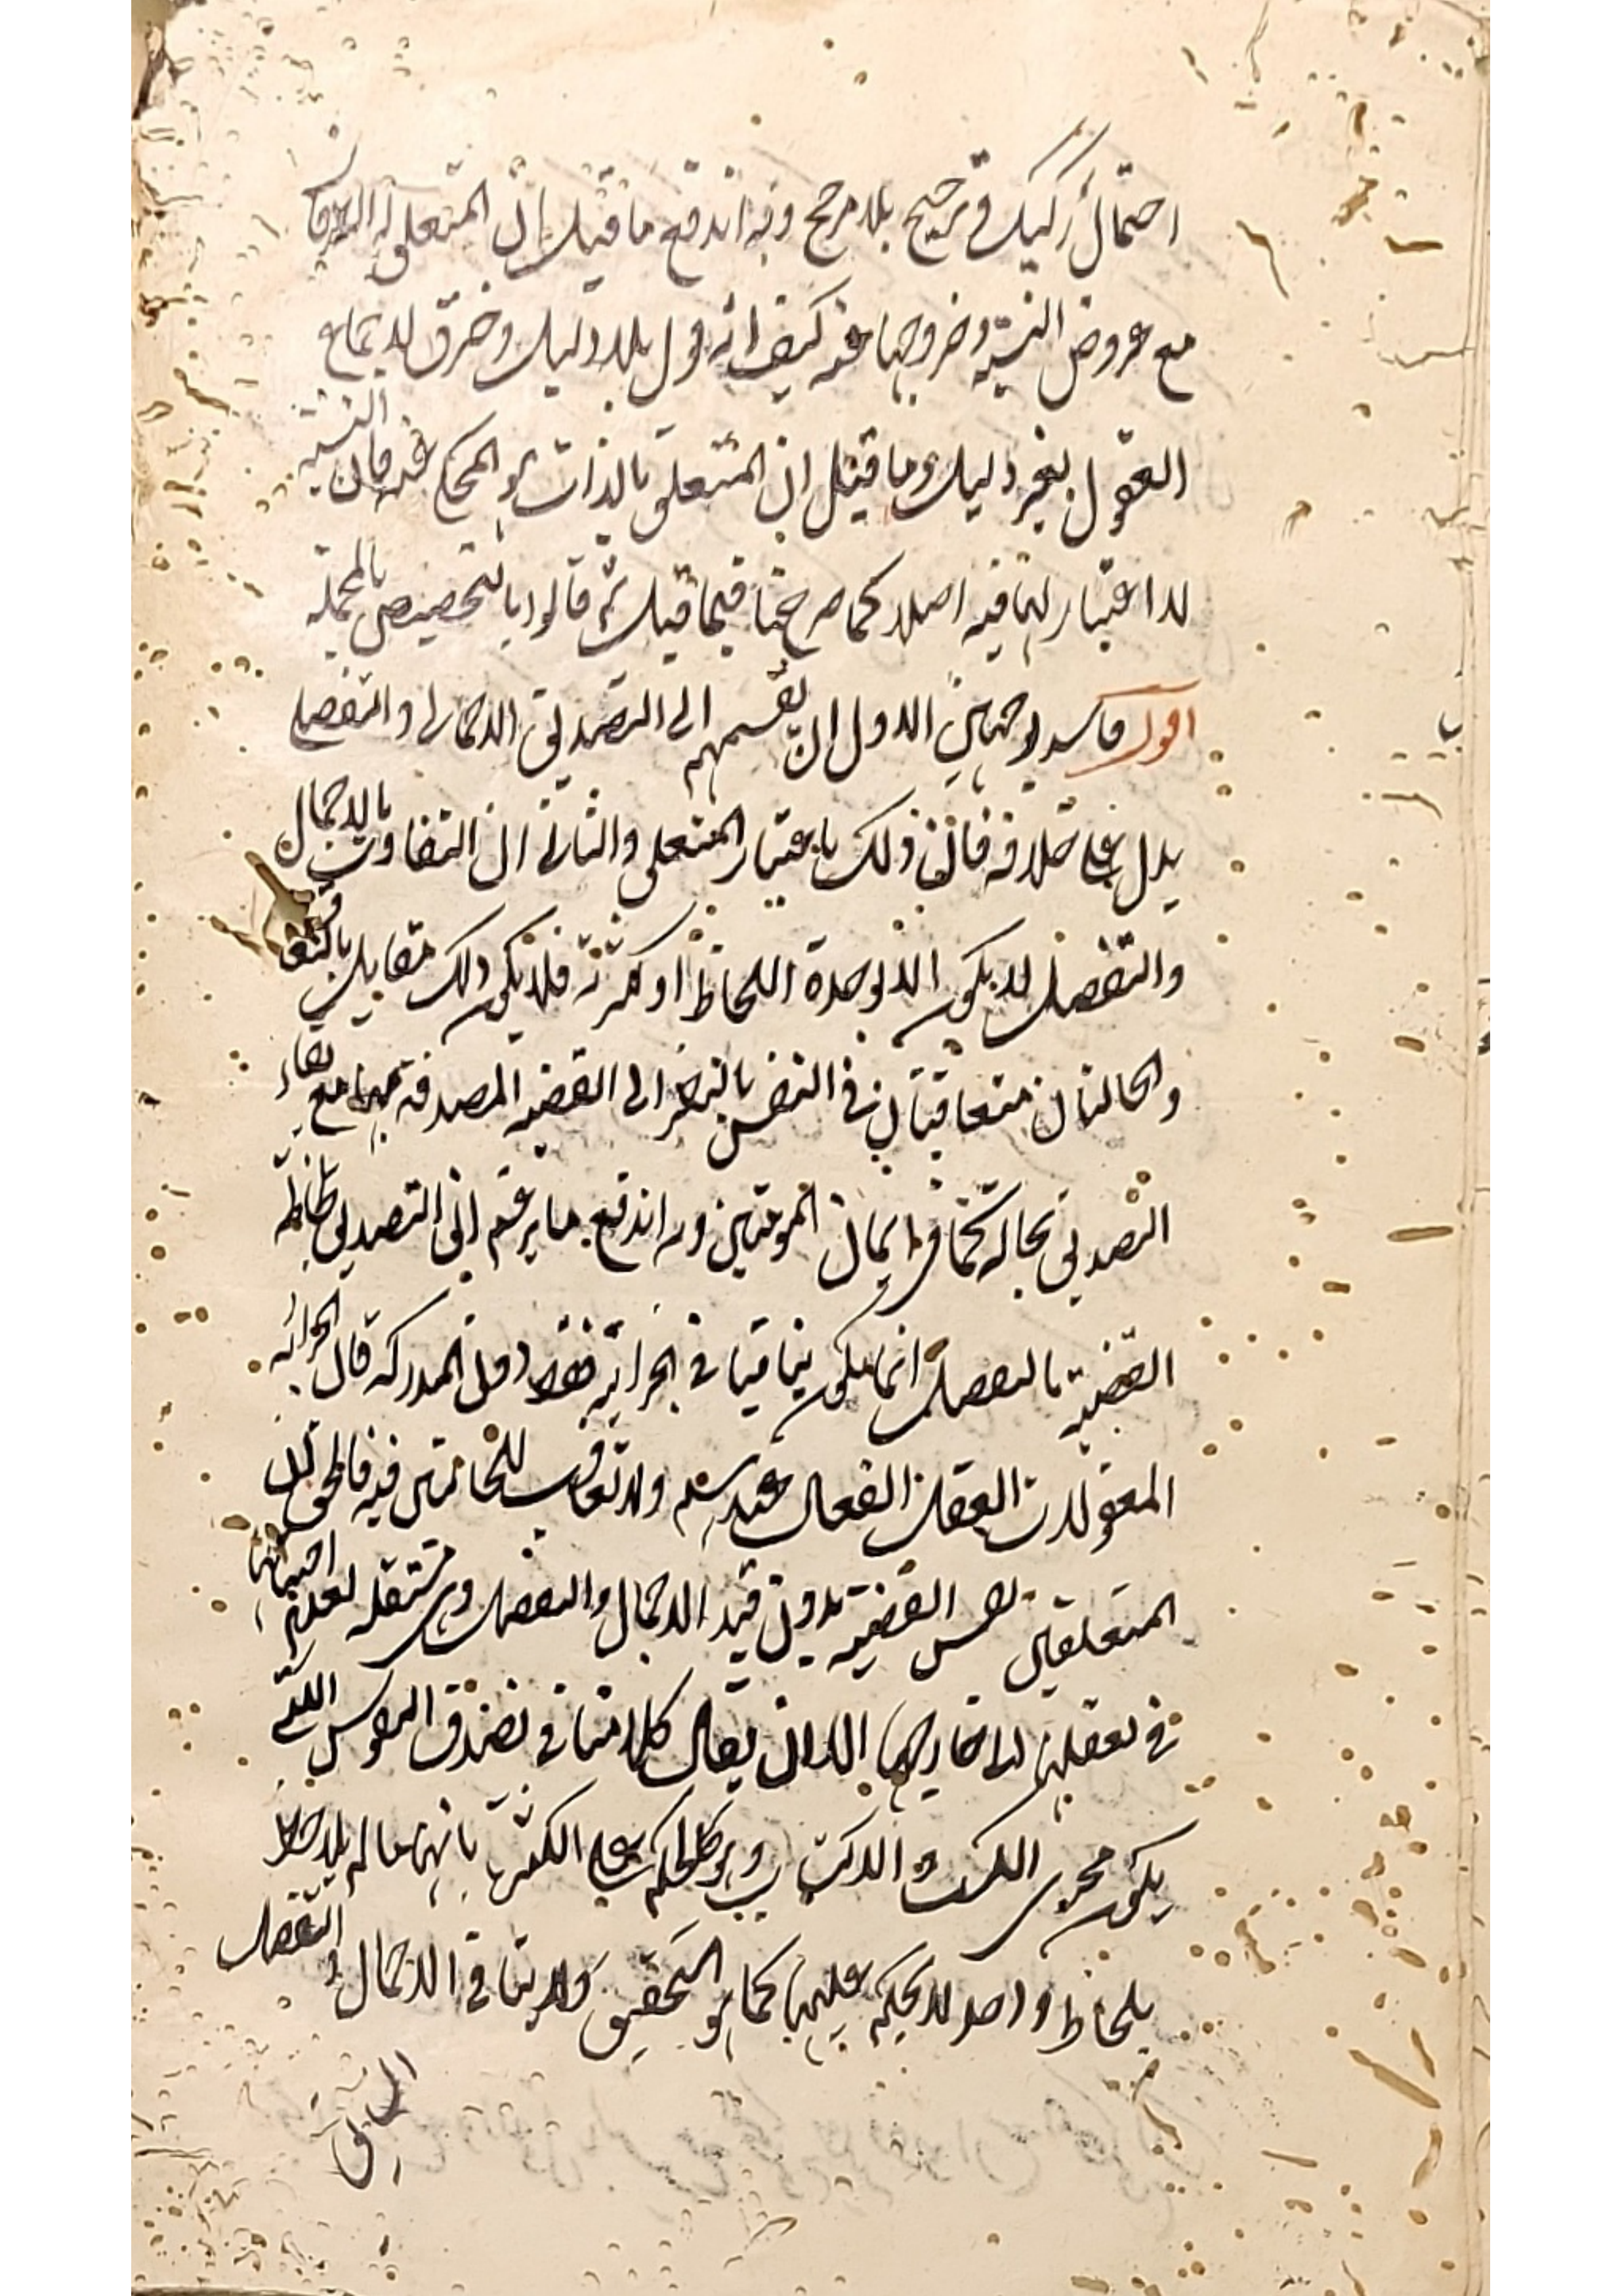 احتمال ركيك وترجيح بلا مرجح وبه اندفع ما قيل ان المتعلق له الطرفان
مع عروض النسبة وخروجها عنه كيف انه قول بلا دليل وخرق لاجماع
العقول بغير دليل وما قيل ان المتعلق بالذات هو المحكى عنه فان النسبة
لا اعتبار لها فيه اصلا كما صرحنا فيما قيل ثم قالوا بالتحصيص بالجملة
اقول فاسد لوجهين الاول ان تقسيمهم الى التصديق الاجمالى والتفصيلى
يدل على خلافه فان ذلك باعتبار المتعلق والثانى ان التفاوت بالاجمال
والتفصيل لا يكون الا لوحدة اللحاظ او كثرته فلا يكون ذلك متقابل بالتعاقب
والحالتان متعاقبتان فى النفس بالنظر الى القضية المصدقة بهما مع بقاء
التصديق بحاله كما فى ايمان المومنين وبه اندفع ما يزعم ان التصديق بلحاظ
القضية بالتفصيل انما يكون باقيا فى الخزانة فقط دون المدركة فان الخزانة
المعقولات العقل الفعال عندهم ولا تعاقب للحالتين فيه فالحق ان
المتعلق نفس القضية بدون قيد الاجمال والتفصيل وهى مستقلة لعدم احتياجها
فى تعقلها الى خارجها الا ان يقال كلامنا فى تصديق النفوس التى
يكون مجرى الكسب والاكتساب وبه يظهر الحكم على الكثير بانها ما لم يلاحظ
بلحاظ واحد لا يحكم عليها كما هو التحقيق ولا ينافى الاجمال والتفصيل
السابق